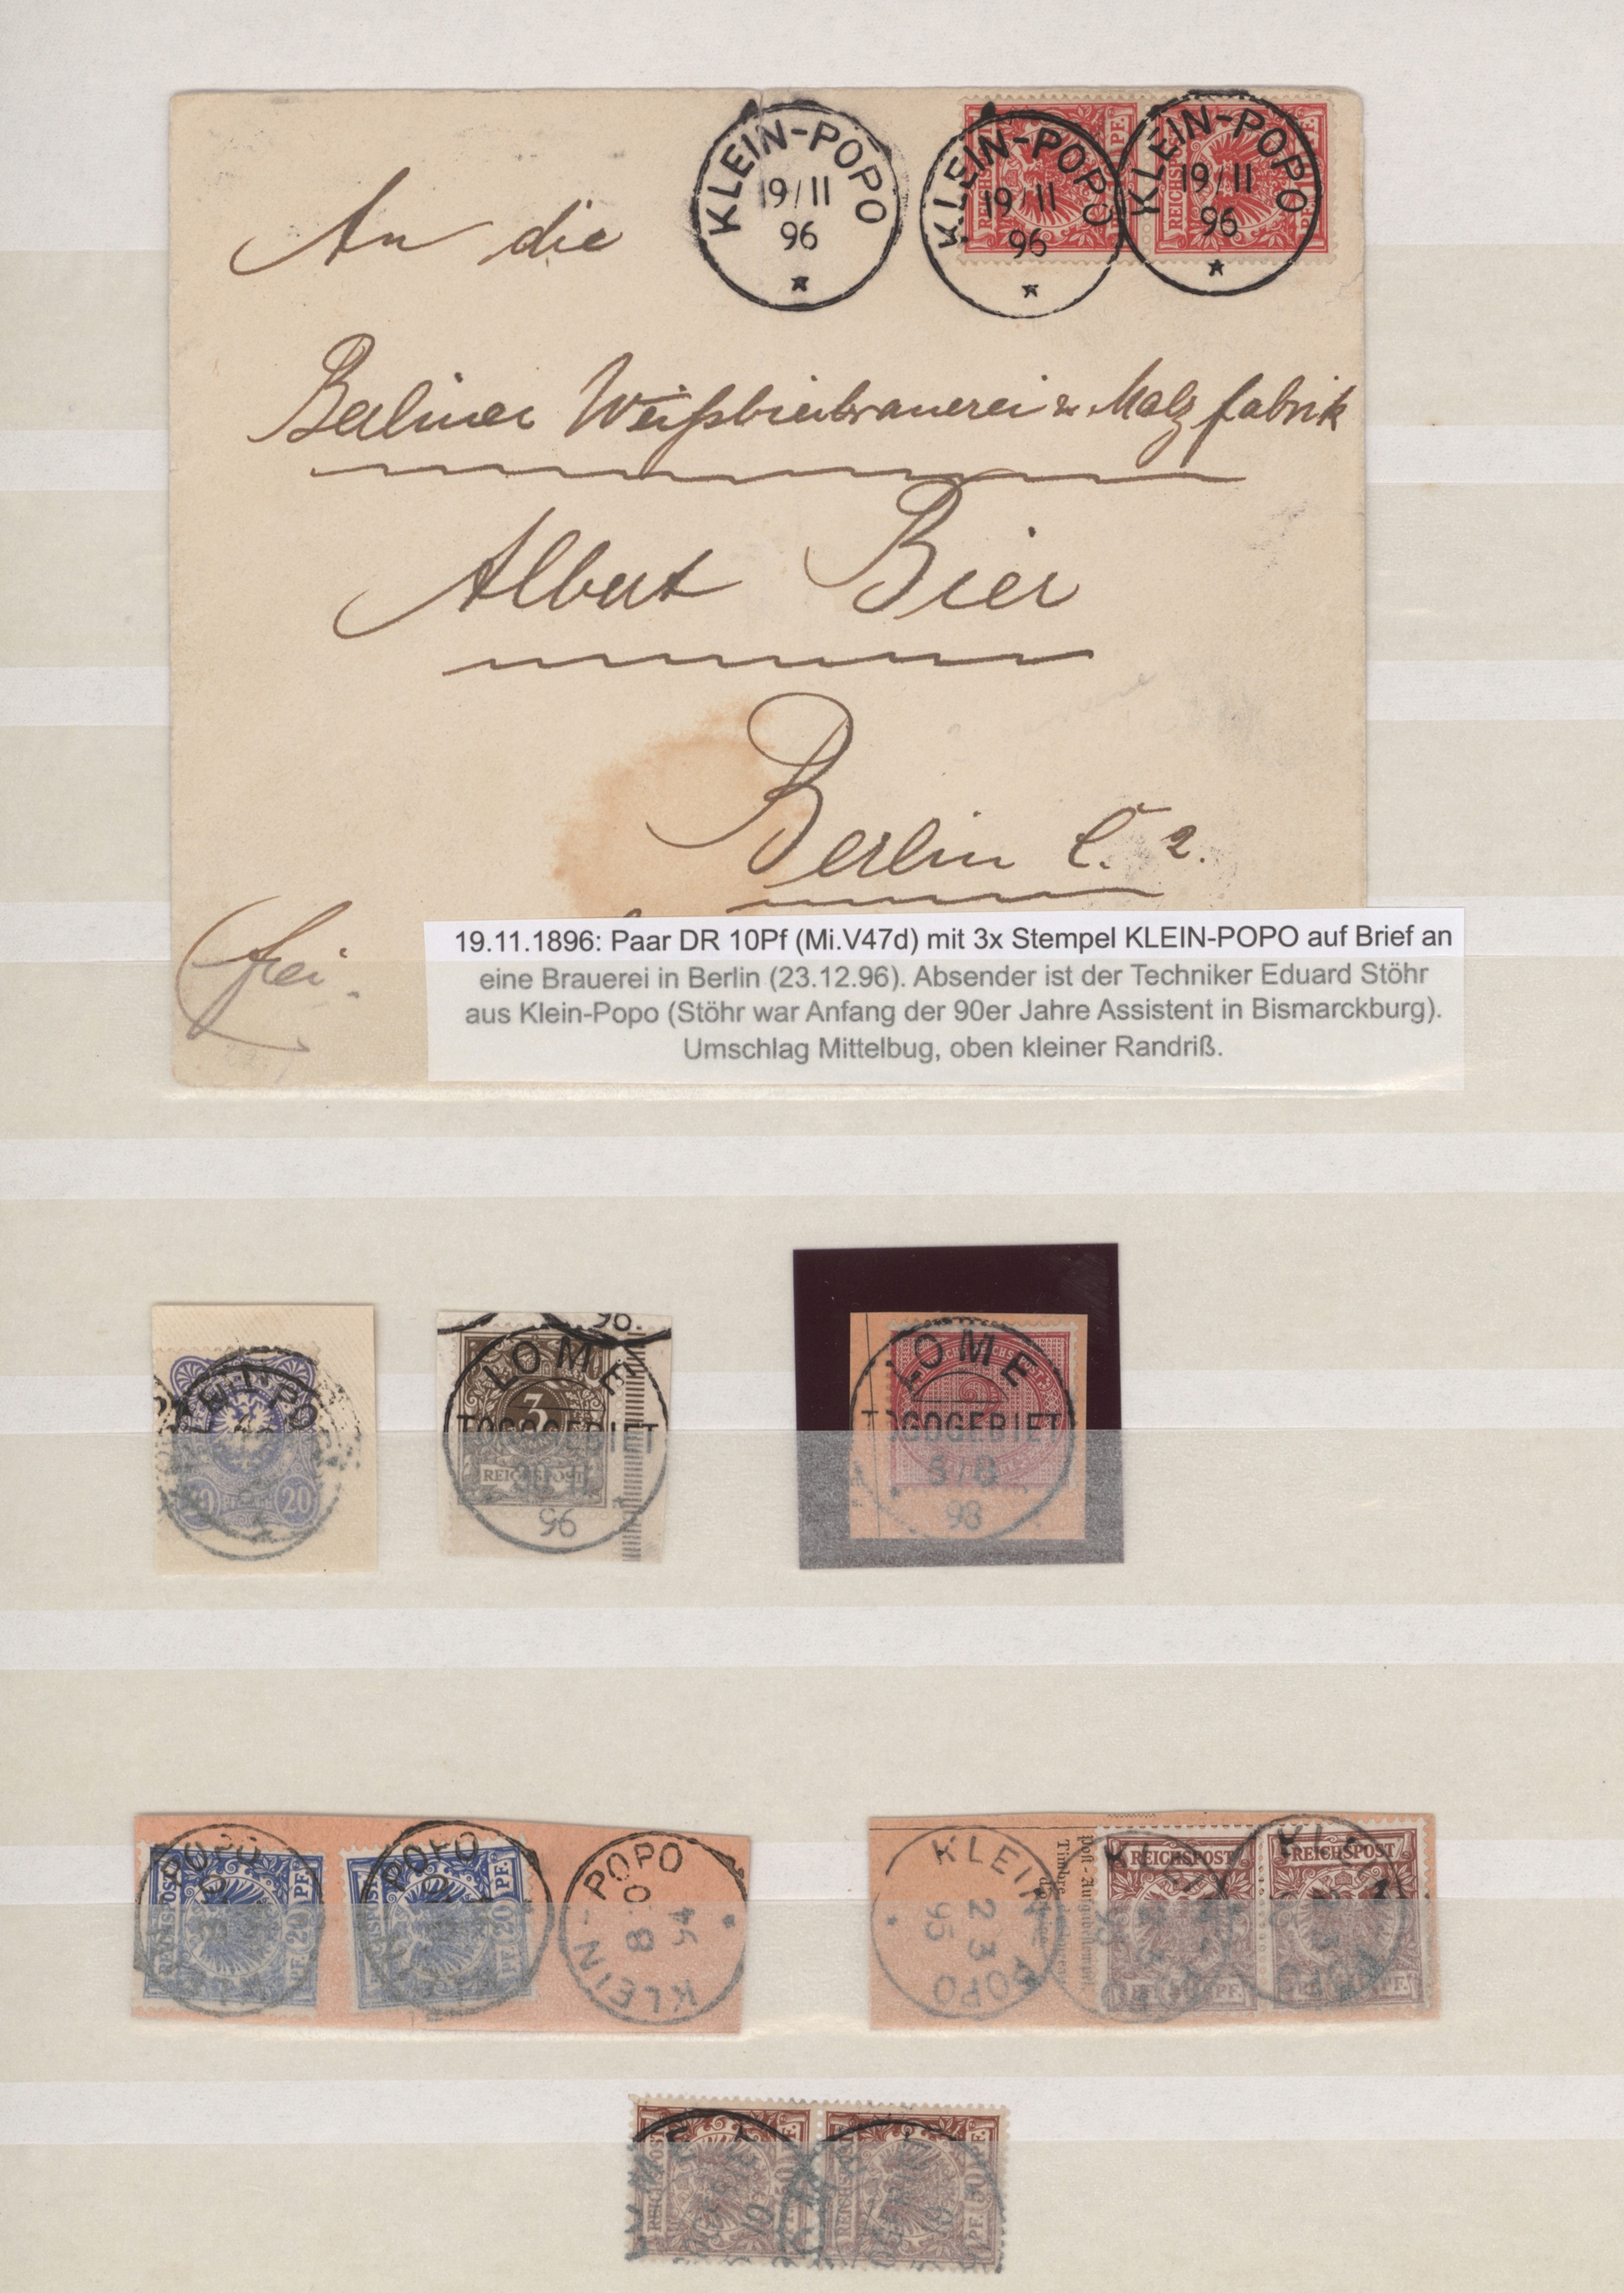 KLEIN-POPO
19/11
96
KLEIN-POPO
19/11
96
KLEIN-POPO
19/11
96
An die
Berliner Weißbierbrauerei u. Malzfabrik
Albert Bier
Berlin C. 2.
frei.
19.11.1896: Paar DR 10Pf (Mi.V47d) mit 3x Stempel KLEIN-POPO auf Brief an
eine Brauerei in Berlin (23.12.96). Absender ist der Techniker Eduard Stöhr
aus Klein-Popo (Stöhr war Anfang der 90er Jahre Assistent in Bismarckburg).
Umschlag Mittelbug, oben kleiner Randriß.
20
96.
LOME
3
TOGOGEBIET
REICHSPOST
96
LOME
TOGOGEBIET
5/8
98
POPO
20 PF.
POPO
PF. 20 PF.
KLEIN-POPO
8
94
KLEIN POPO
23
95
REICHSPOST
REICHSPOST
50 PF.
50 PF.